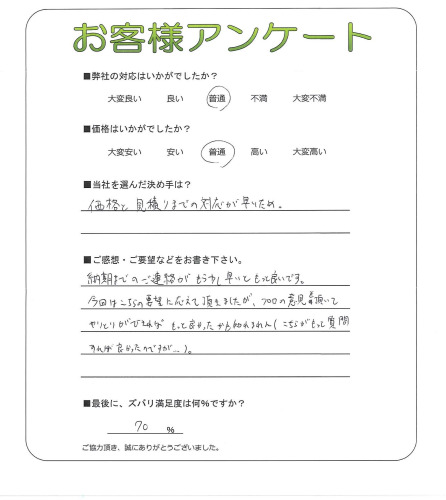 お客様アンケート
■弊社の対応はいかがでしたか？
大変良い 良い 普通 不満 大変不満
■価格はいかがでしたか？
大変安い 安い 普通 高い 大変高い
■当社を選んだ決め手は？
価格と見積りまでの対応が早いため。
■ご感想・ご要望などをお書き下さい。
納期までのご連絡がもう少し早いともっと良いです。
今回はこちらの要望に応えて頂きましたが、プロの意見も頂いて
やりとりができればもっと良かったかも知れません(こちらがもって質問
すれば良かったのですが…)。
■最後に、ズバリ満足度は何％ですか？
70 ％
ご協力頂き、誠にありがとうございました。